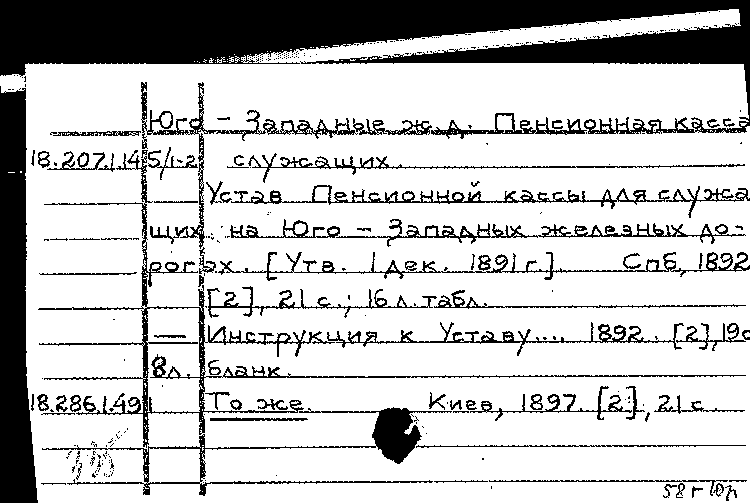 Юго - Западные ж.д. Пенсионная касса
18.207.1.14 5/1-2 служащих.
Устав Пенсионной кассы для служа
щих на Юго - Западных железных до-
рогах. [Утв. 1 дек. 1891 г.]. Спб, 1892
[2], 21 с.; 16 л. табл.
— Инструкция к Уставу.... 1892. [2], 19с
8л. бланк.
18.286.1.49 То же. Киев, 1897. [2], 21 с.
335
58 г